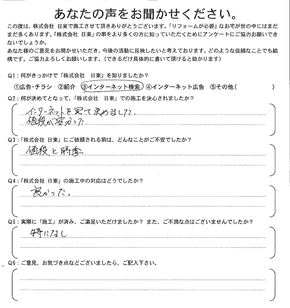 あなたの声をお聞かせください。
この度は、株式会社 日東で施工させて頂きありがとうございます。「リフォームが必要」なお宅が世の中にはまだ
まだ多くあります。「株式会社 日東」の事をより多くの方に知っていただくためにアンケートにご協力お願いでき
ないでしょうか。
あなた様のご意見をお聞かせいただき、今後の活動に反映したいと考えております。どのような些細なことでも結構
です。ご協力よろしくお願いします。（できるだけ具体的に書いて頂けると助かります。）
Q1：何がきっかけで「株式会社 日東」を知りましたか？
①広告・チラシ ②紹介 ③インターネット検索 ④インターネット広告 ⑤その他（ ）
Q2：何が決めてとなって、「株式会社 日東」での施工を決されましたか？
インターネットを見て決めました。
値段が安かった
Q3：「株式会社 日東」にご依頼される前は、どんなことがご不安でしたか？
値段と時季
Q4：「株式会社 日東」の施工中の対応はどうでしたか？
良かった。
Q5：実際に「施工」が済み、ご満足いただけましたか？ また、ご不満な点はございませんでしたか？
特になし
Q6：ご意見、お気づき点などございましたら、ご記入下さい。